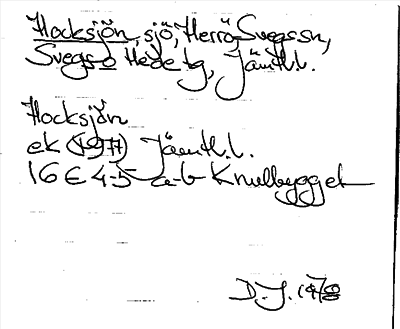 Hocksjön, sjö, Herrö Svegs sn,
Svegs o Hede tg, Jämtl.l.
Hocksjön
ek (1971) Jämtl.l.
16 E 4-5 a-b Knulbygget
D.J. 1978